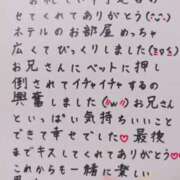 せてくれてありがとう(ˊᵕˋ)
ホテルのお部屋めっちゃ
広くてびっくりしました
お兄さんにベットに押し
倒されてイチャイチャするの
興奮しました(//∇//)お兄さん
といっぱい気持ちいいこと
できて幸せでした❤最後
までキスしてくれてありがとう❤
これからも一緒に楽しい